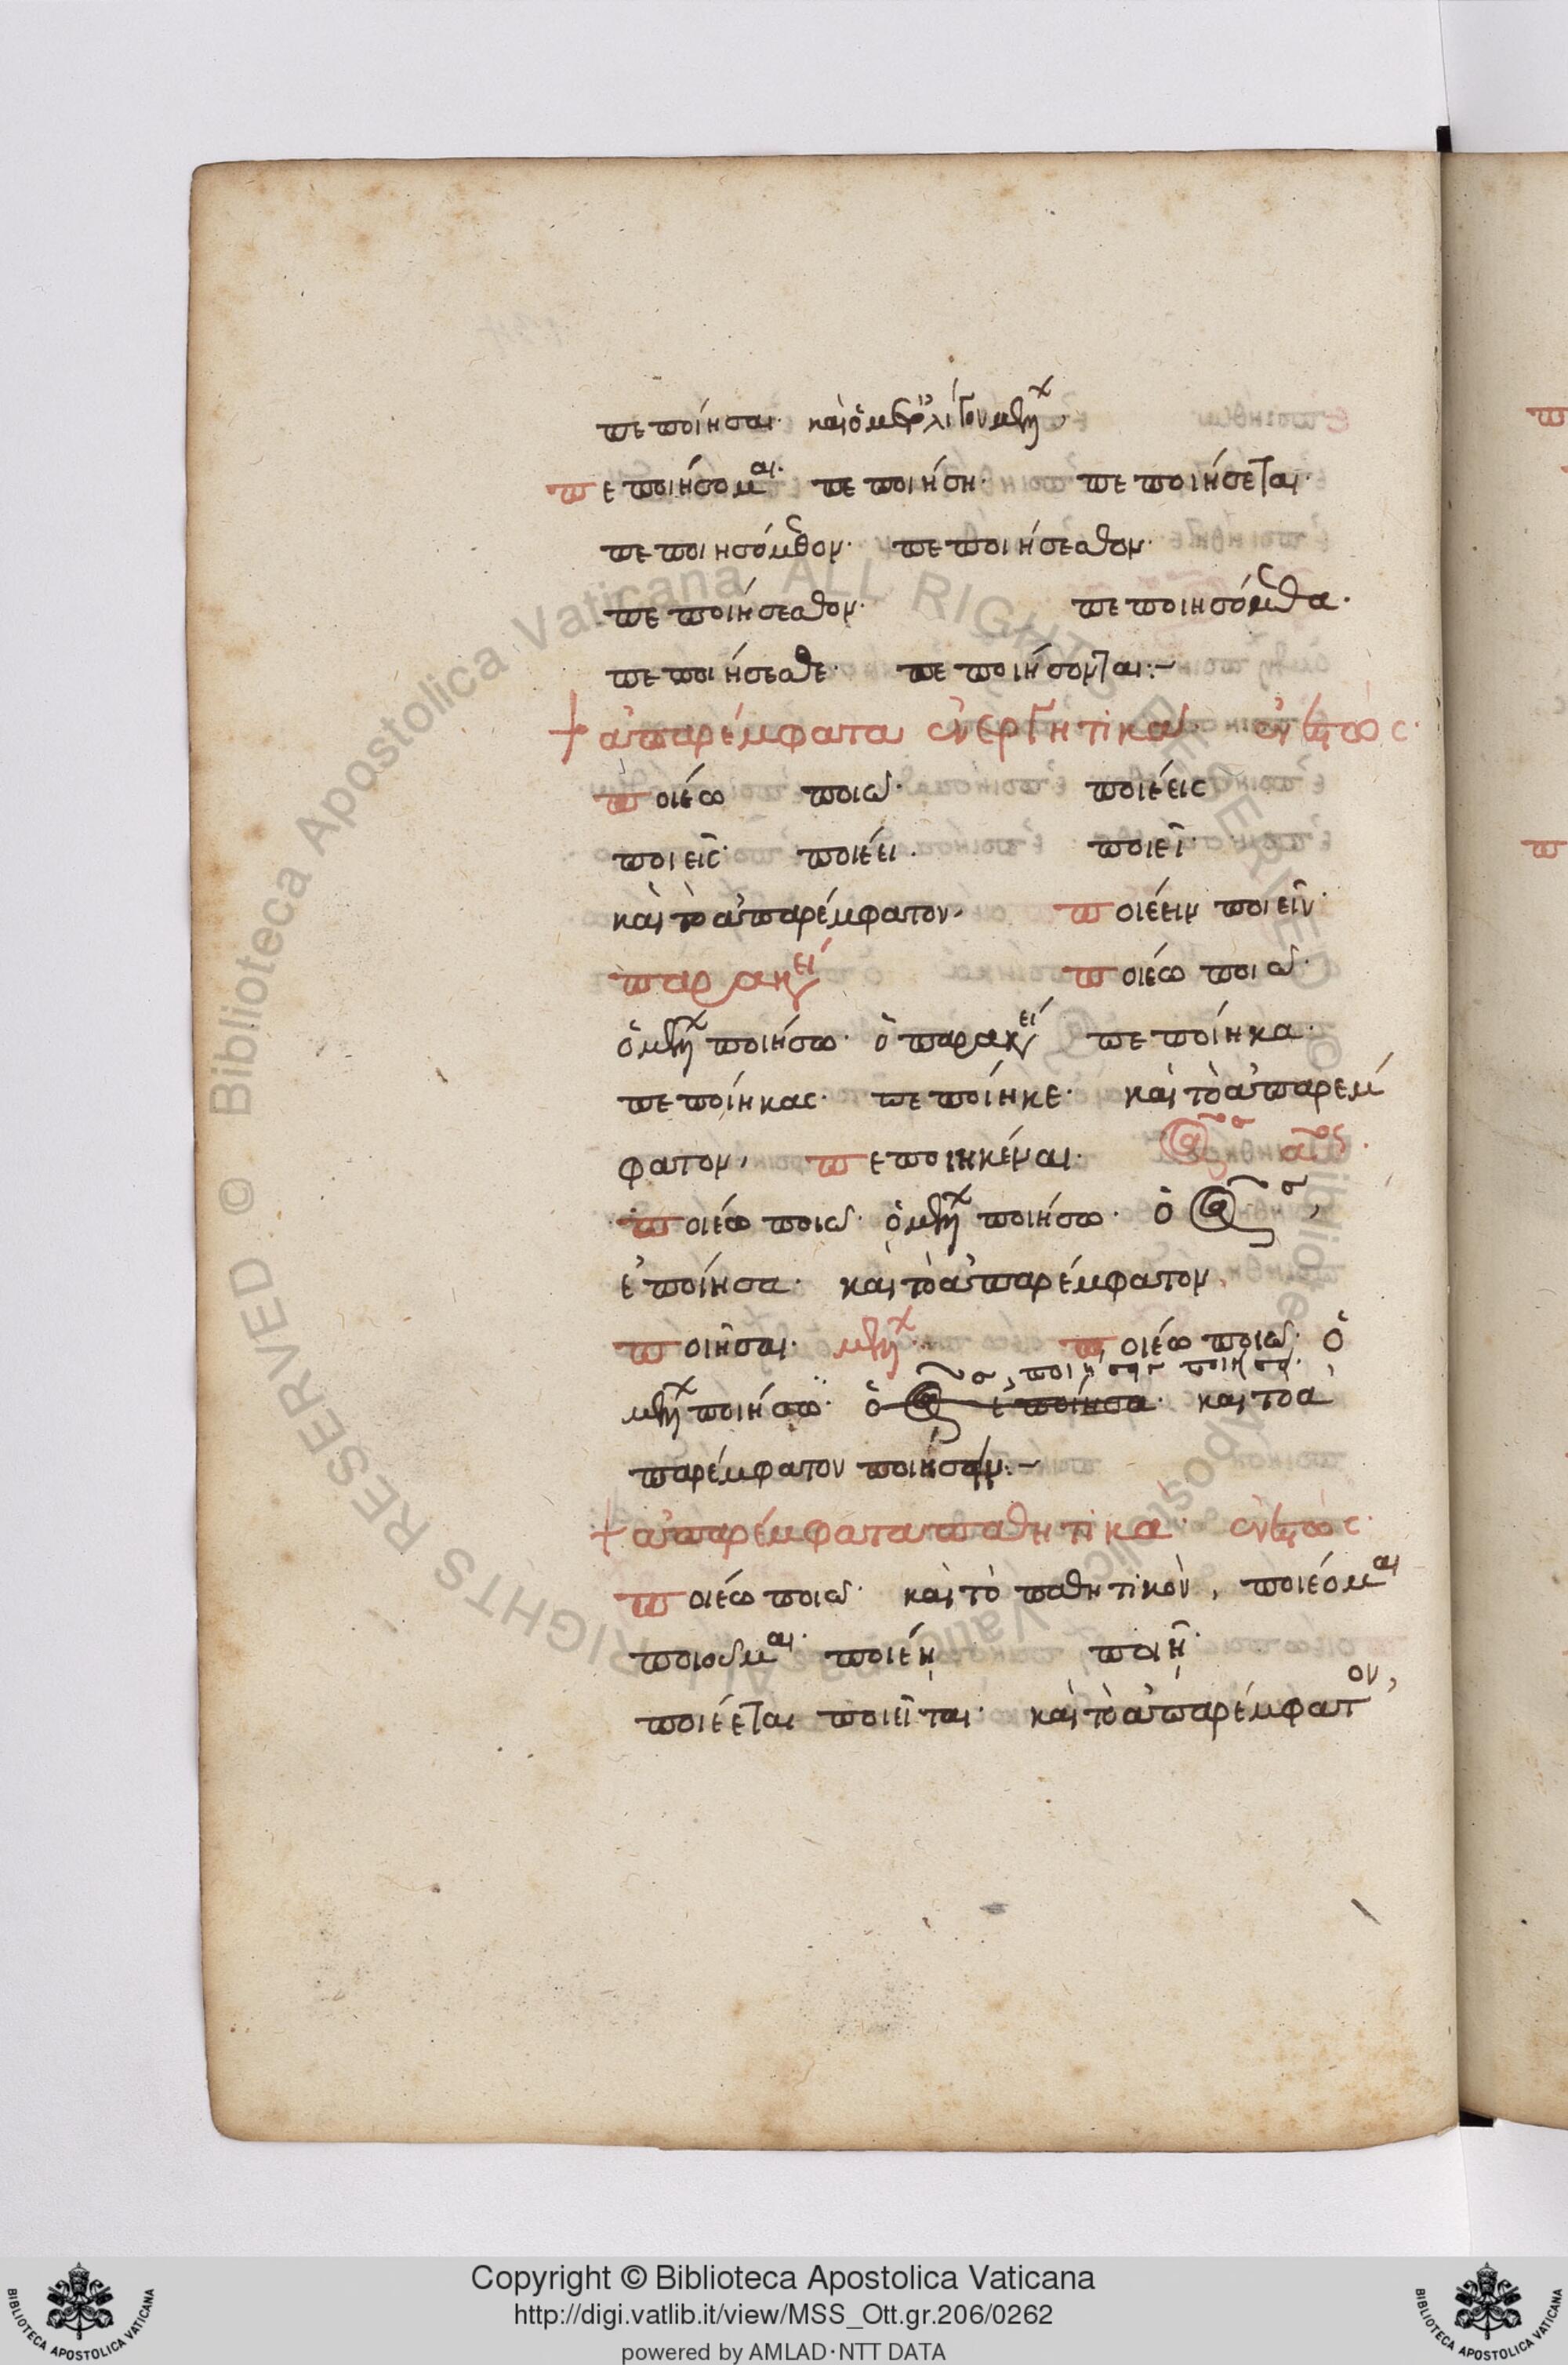 πεποίησαι· καὶ ὁ μετ᾽ ὀλίγον μέλλ
πεποιήσομαι· πεποιήση· πεποιήσεται·
πεποιησόμεθον· πεποιήσεσθον·
πεποιήσεσθον· πεποιησόμεθα·
πεποιήσεσθε· πεποιήσονται:~
+ ἀπαρέμφατα ἐνεργητικά· ἐνεστώς·
ποιέω ποιῶ· ποιέεις
ποιεῖς· ποιέει· ποιεῖ·
καὶ τὸ ἀπαρέμφατον, ποιέειν ποιεῖν·
παρακεί ποιέω ποιῶ·
ὁ μέλλ ποιήσω· ὁ παρακεί πεποίηκα·
πεποίηκας· πεποίηκε· καὶ τὸ ἀπαρέμ
φατον, πεποιηκέναι·
ποιέω ποιῶ· ὁ μέλλ ποιήσω· ὁ
ἐποίησα· καὶ τὸ ἀπαρέμφατον,
ποιῆσαι· μέλλ ποιέω ποιῶ· ὁ
μέλλ ποιήσω· ὁ ἐποίησα· καὶ τὸ ἀ
παρέμφατον ποιήσειν:~
+ ἀπαρέμφατα παθητικά· ἐνεστώς·
ποιέω ποιῶ· καὶ τὸ παθητικὸν, ποιέομαι
ποιοῦμαι· ποιέῃ ποιῇ·
ποιέεται ποιεῖται· καὶ τὸ ἀπαρέμφατον,
Copyright © Biblioteca Apostolica Vaticana
http://digi.vatlib.it/view/MSS_Ott.gr.206/0262
powered by AMLAD·NTT DATA
BIBLIOTECA APOSTOLICA VATICANA
BIBLIOTECA APOSTOLICA VATICANA